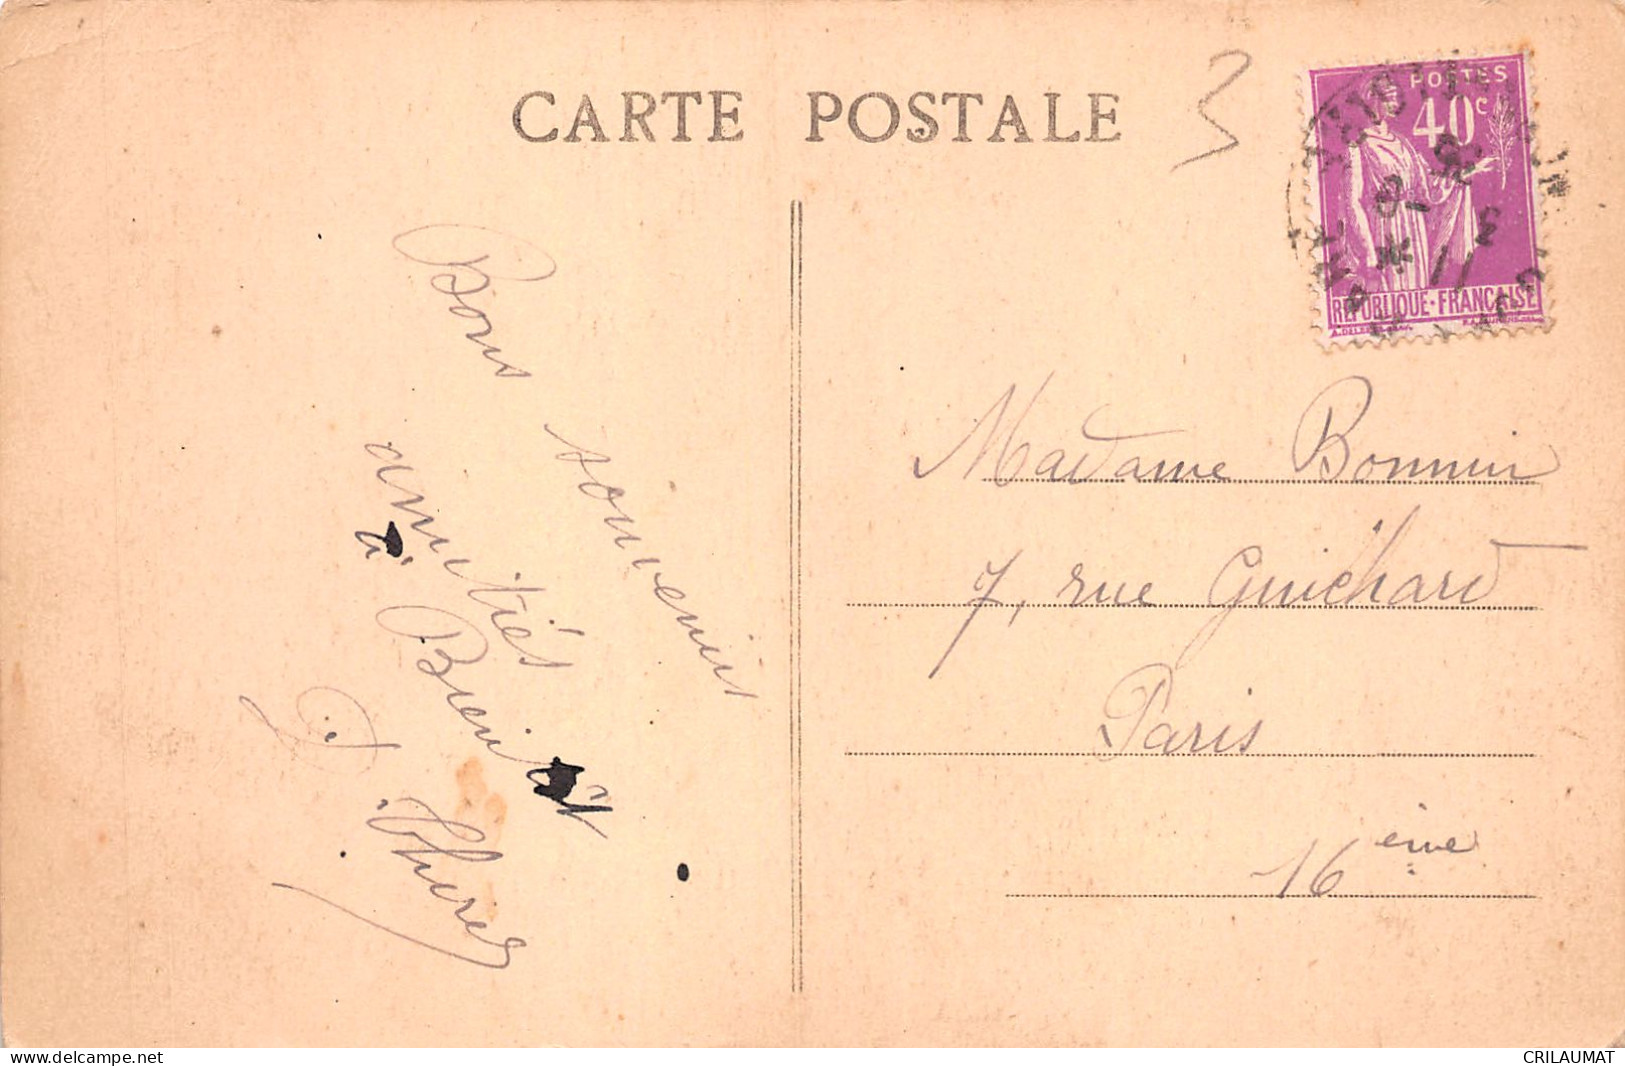 CARTE POSTALE
3
POSTES
40c
RÉPUBLIQUE·FRANÇAISE
Bons souvenirs
amitiés
à Bientôt
Madame Bonnin
7, rue Guichard
Paris
16ème
www.delcampe.net
CRILAUMAT